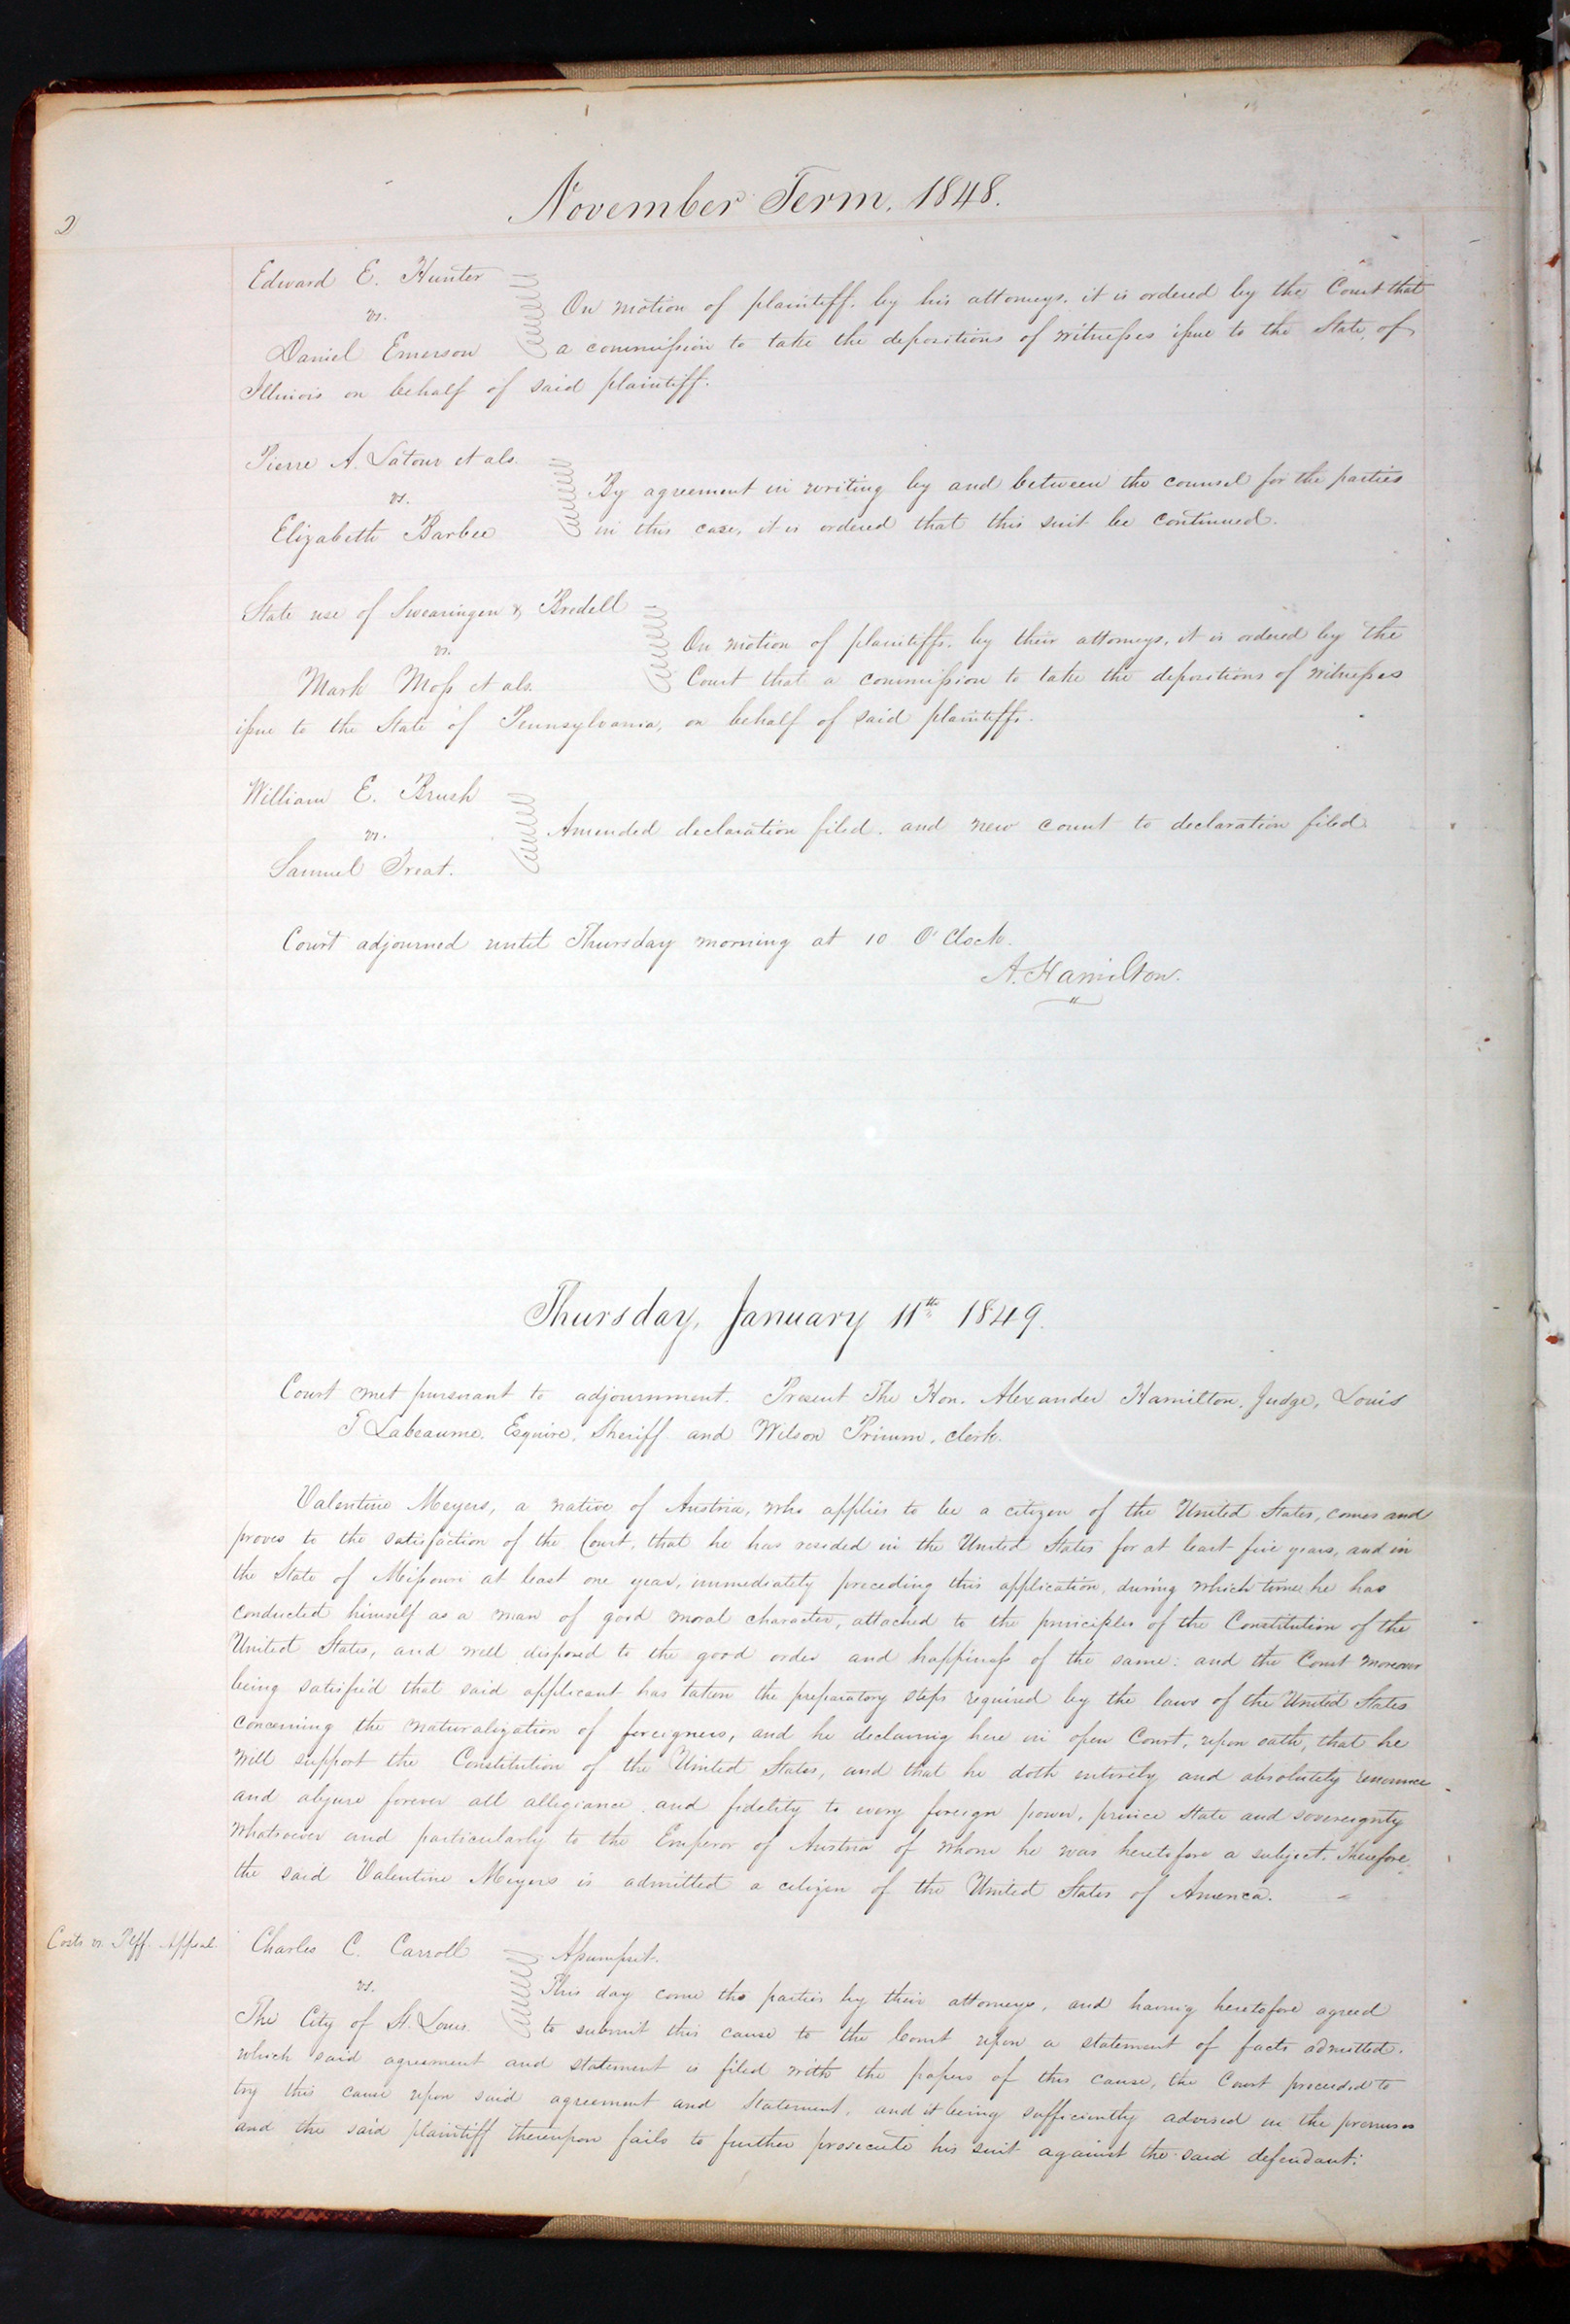 2
November Term, 1848.
Edward E. Hunter
vs.
Daniel Emerson
On motion of plaintiff, by his attorneys, it is ordered by the Court that
a commission to take the depositions of witnesses issue to the State, of
Illinois on behalf of said plaintiff.
Pierre A. Latour et als.
vs.
Elizabeth Barbee
By agreement in writing by and between the counsel for the parties
in this case, it is ordered that this suit be continued.
State use of Swearingen & Bredell
vs.
Mark Moss et als.
On motion of plaintiffs, by their attorneys, it is ordered by the
Court that a commission to take the depositions of witnesses
issue to the State of Pennsylvania, on behalf of said plaintiffs.
William E. Brush
vs.
Samuel Treat.
Amended declaration filed. and new count to declaration filed.
Court adjourned until Thursday morning at 10 O'Clock.
A. Hamilton.
Thursday, January 11th 1849.
Court met pursuant to adjournment. Present The Hon. Alexander Hamilton, Judge, Louis
T Labeaume, Esquire, Sheriff and Wilson Primm, clerk.
Valentine Meyers, a native of Austria, who applies to be a citizen of the United States, comes and
proves to the satisfaction of the Court, that he has resided in the United States for at least five years, and in
the State of Missouri at least one year, immediately preceding this application, during which time he has
conducted himself as a man of good moral character, attached to the principles of the Constitution of the
United States, and well disposed to the good order and happiness of the same: and the Court moreover
being satisfied that said applicant has taken the preparatory steps required by the laws of the United States
concerning the naturalization of foreigners, and he declaring here in open Court, upon oath, that he
will support the Constitution of the United States, and that he doth entirely and absolutely renounce
and abjure forever all allegiance and fidelity to every foreign power, prince State and sovereignty
whatsoever and particularly to the Emperor of Austria of whom he was heretofore a subject. Therefore
the said Valentine Meyers is admitted a citizen of the United States of America.
Costs vs. Plff. Appeal.
Charles C. Carroll
vs.
The City of St. Louis.
Assumpsit.
This day come the parties by their attorneys, and having heretofore agreed
to submit this cause to the Court upon a statement of facts admitted.
which said agreement and statement is filed with the papers of this cause, the Court proceeded to
try this cause upon said agreement and Statement, and it being sufficiently advised in the premises
and the said plaintiff thereupon fails to further prosecute his suit against the said defendant: